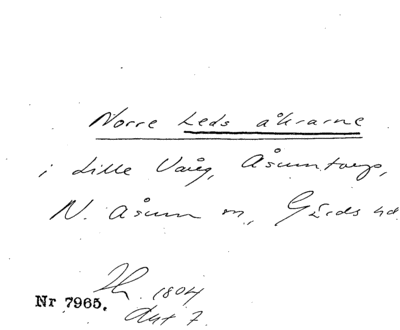 Norre Leds åkrarne
i Lille Vång, Åsumtorp,
N. Åsum sn, Gärds hd.
1804
Nr 7965.
Akt 7